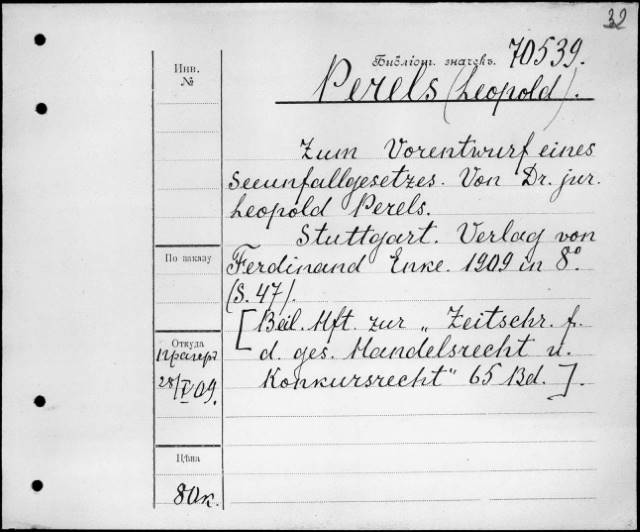 32
Инв.
№
Библіот. значекъ. 70539.
Perels (Leopold).
Zum Vorentwurf eines
Seeunfallgesetzes. Von Dr. jur.
Leopold Perels.
Stuttgart. Verlag von
Ferdinand Enke. 1909 in 8°.
(S. 47).
[Beil. Hft. zur „Zeitschr. f.
d. ges. Handelsrecht u.
Konkursrecht" 65 Bd.].
По заказу
Откуда
Прагеръ
28/IV 09.
Цѣна
80 к.